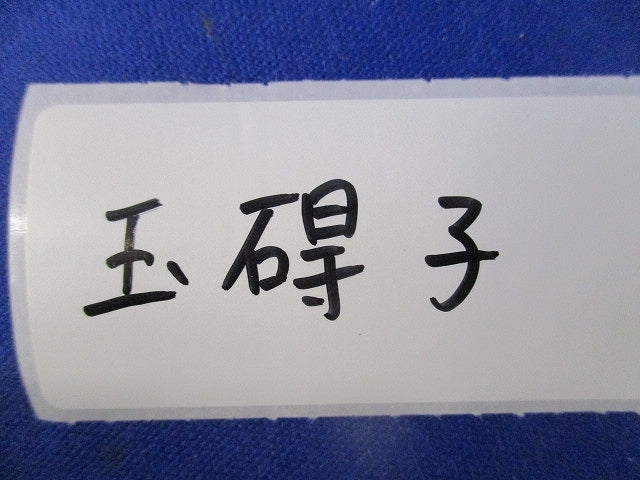 玉碍子